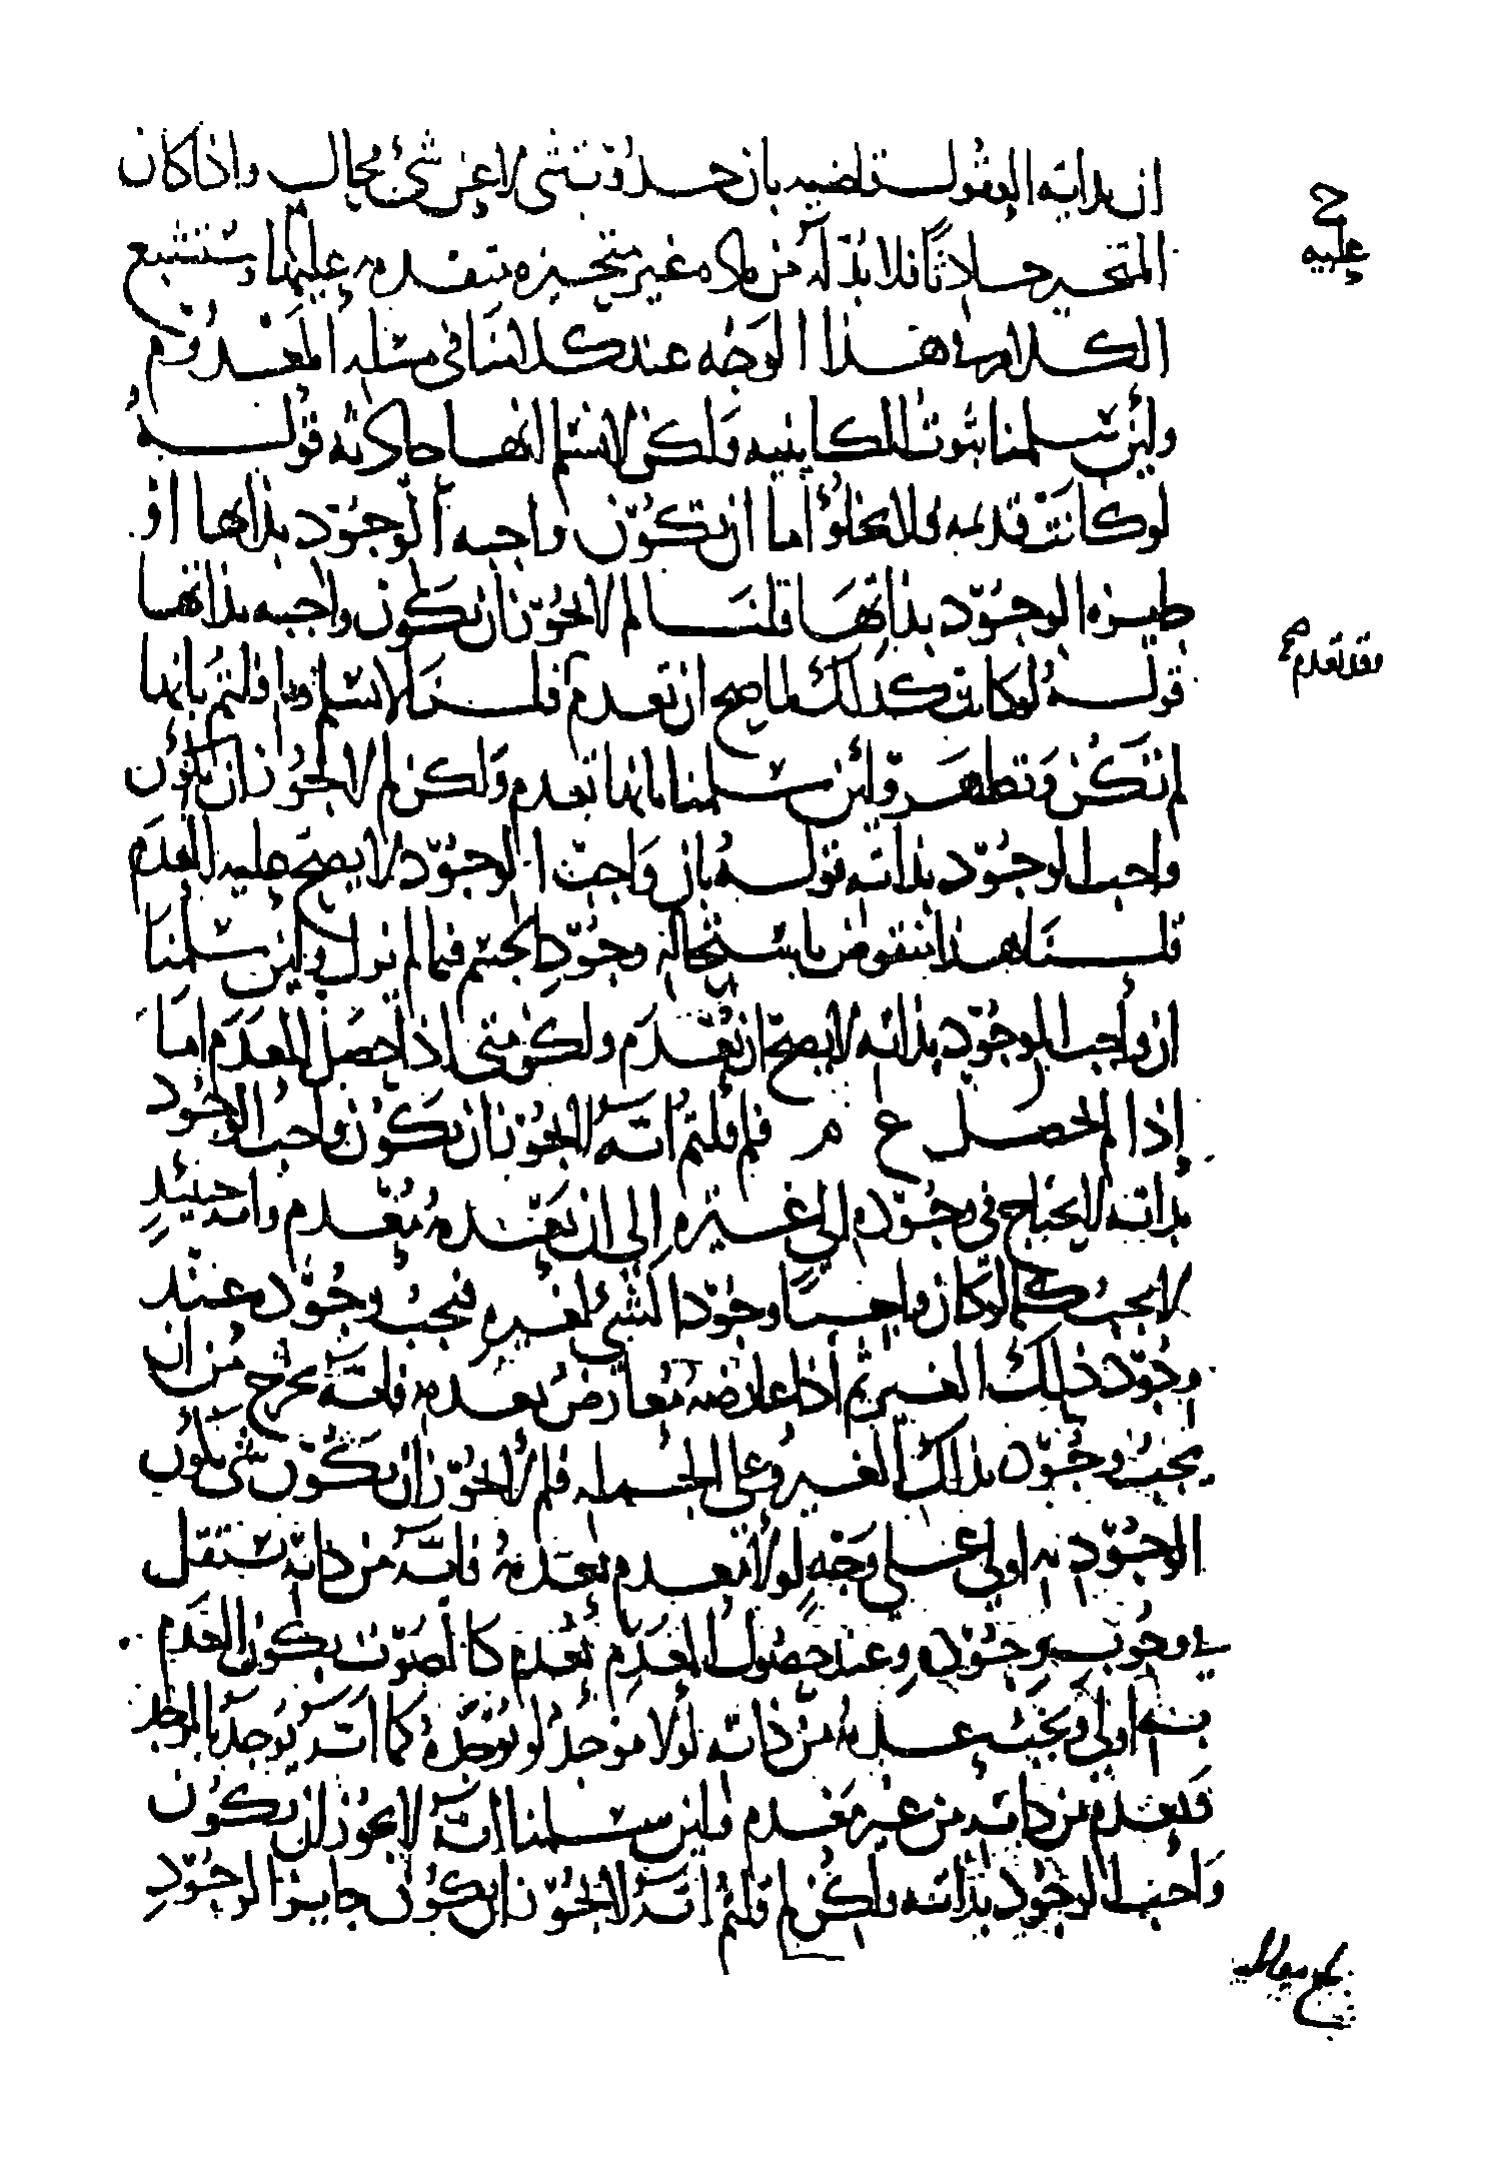 ان بداية العقول قاضيه بان حدوث شى لا عن شئ محال واذا كان
المتحيز حادثا فلا بد له من ماده غير متحيزه متقدمه عليها وسنشبع
الكلام فى هذا الوجه عند كلامنا فى مسله المعدوم
ولئن سلمنا بثبوت الكاينيه ولكن لا نسلم انها حادثه قوله
لو كانت قديمه فلا يخلو اما ان تكون واجبه الوجود بذاتها او
جايزه الوجود بذاتها قلنا لم لا يجوز ان تكون واجبه بذاتها
قوله لو كانت كذلك لما صح ان تعدم قلنا لا نسلم وما قلتم بانها
لم تكن وتظهر ولئن سلمنا بانها تعدم ولكن لم لا يجوز ان تكون
واجب الوجود بذاته قوله بان واجب الوجود لا يصح عليه العدم
قلنا هذا منقوض باستحالة وجود الجسم فيما لم يزل ولئن سلمنا
ان واجب الوجود بذاته لا يصح ان يعدم ولكن متى اذا حصل المعدم اما
اذا لم يحصل ع م فلم قلتم انه لا يجوز ان يكون واجب الوجود
بذاته لا يحتاج فى وجوده الى غيره الى ان يعدمه معدم وانه حينئذ
لا يجب كما لو كان واجبا وجود الشئ لغيره فيجب وجوده عند
وجود ذلك الغير ثم اذا عارضه معارض يعدمه فانه يخرج من ان
يجب وجوده بذلك الغير وعلى الجمله فلم لا يجوز ان يكون شى يكون
الوجود به اولى على وجه لولا معدم يعدمه فانه من ذاته يستقل
فى وجوب وجوده وعند حصول المعدم يعدم كالصوت يكون العدم
به اولى ويجب عدمه من ذاته لولا موجد لو يوجده كما انه يوجد بالموجد
ويعدم من ذاته من غير معدم ولئن سلمنا انه لا يجوز ان يكون
واجب الوجود بذاته ولكن لم قلتم انه لا يجوز ان يكون جايز الوجود
عليه
وقد تعدم صح